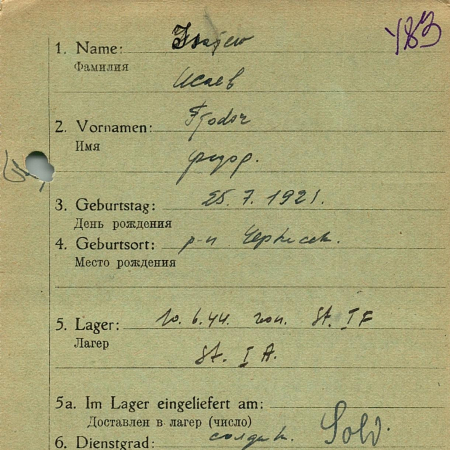 УВЗ
1. Name: Isajew
Фамилия
Исаев
2. Vornamen: Fjodor
Имя
Федор.
3. Geburtstag: 25. 7. 1921.
День рождения
4. Geburtsort: р-н
Место рождения
5. Lager: 10. 6. 44. von. St. I F
Лагер
St. I A.
5a. Im Lager eingeliefert am:
Доставлен в лагер (число)
6. Dienstgrad: солдат. Sold.